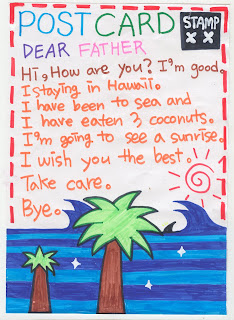 POST CARD
STAMP
DEAR FATHER
Hi, How are you? I'm good.
I staying in Hawaii.
I have been to sea and
I have eaten 3 coconuts.
I'm going to see a sunrise.
I wish you the best.
Take care.
Bye.